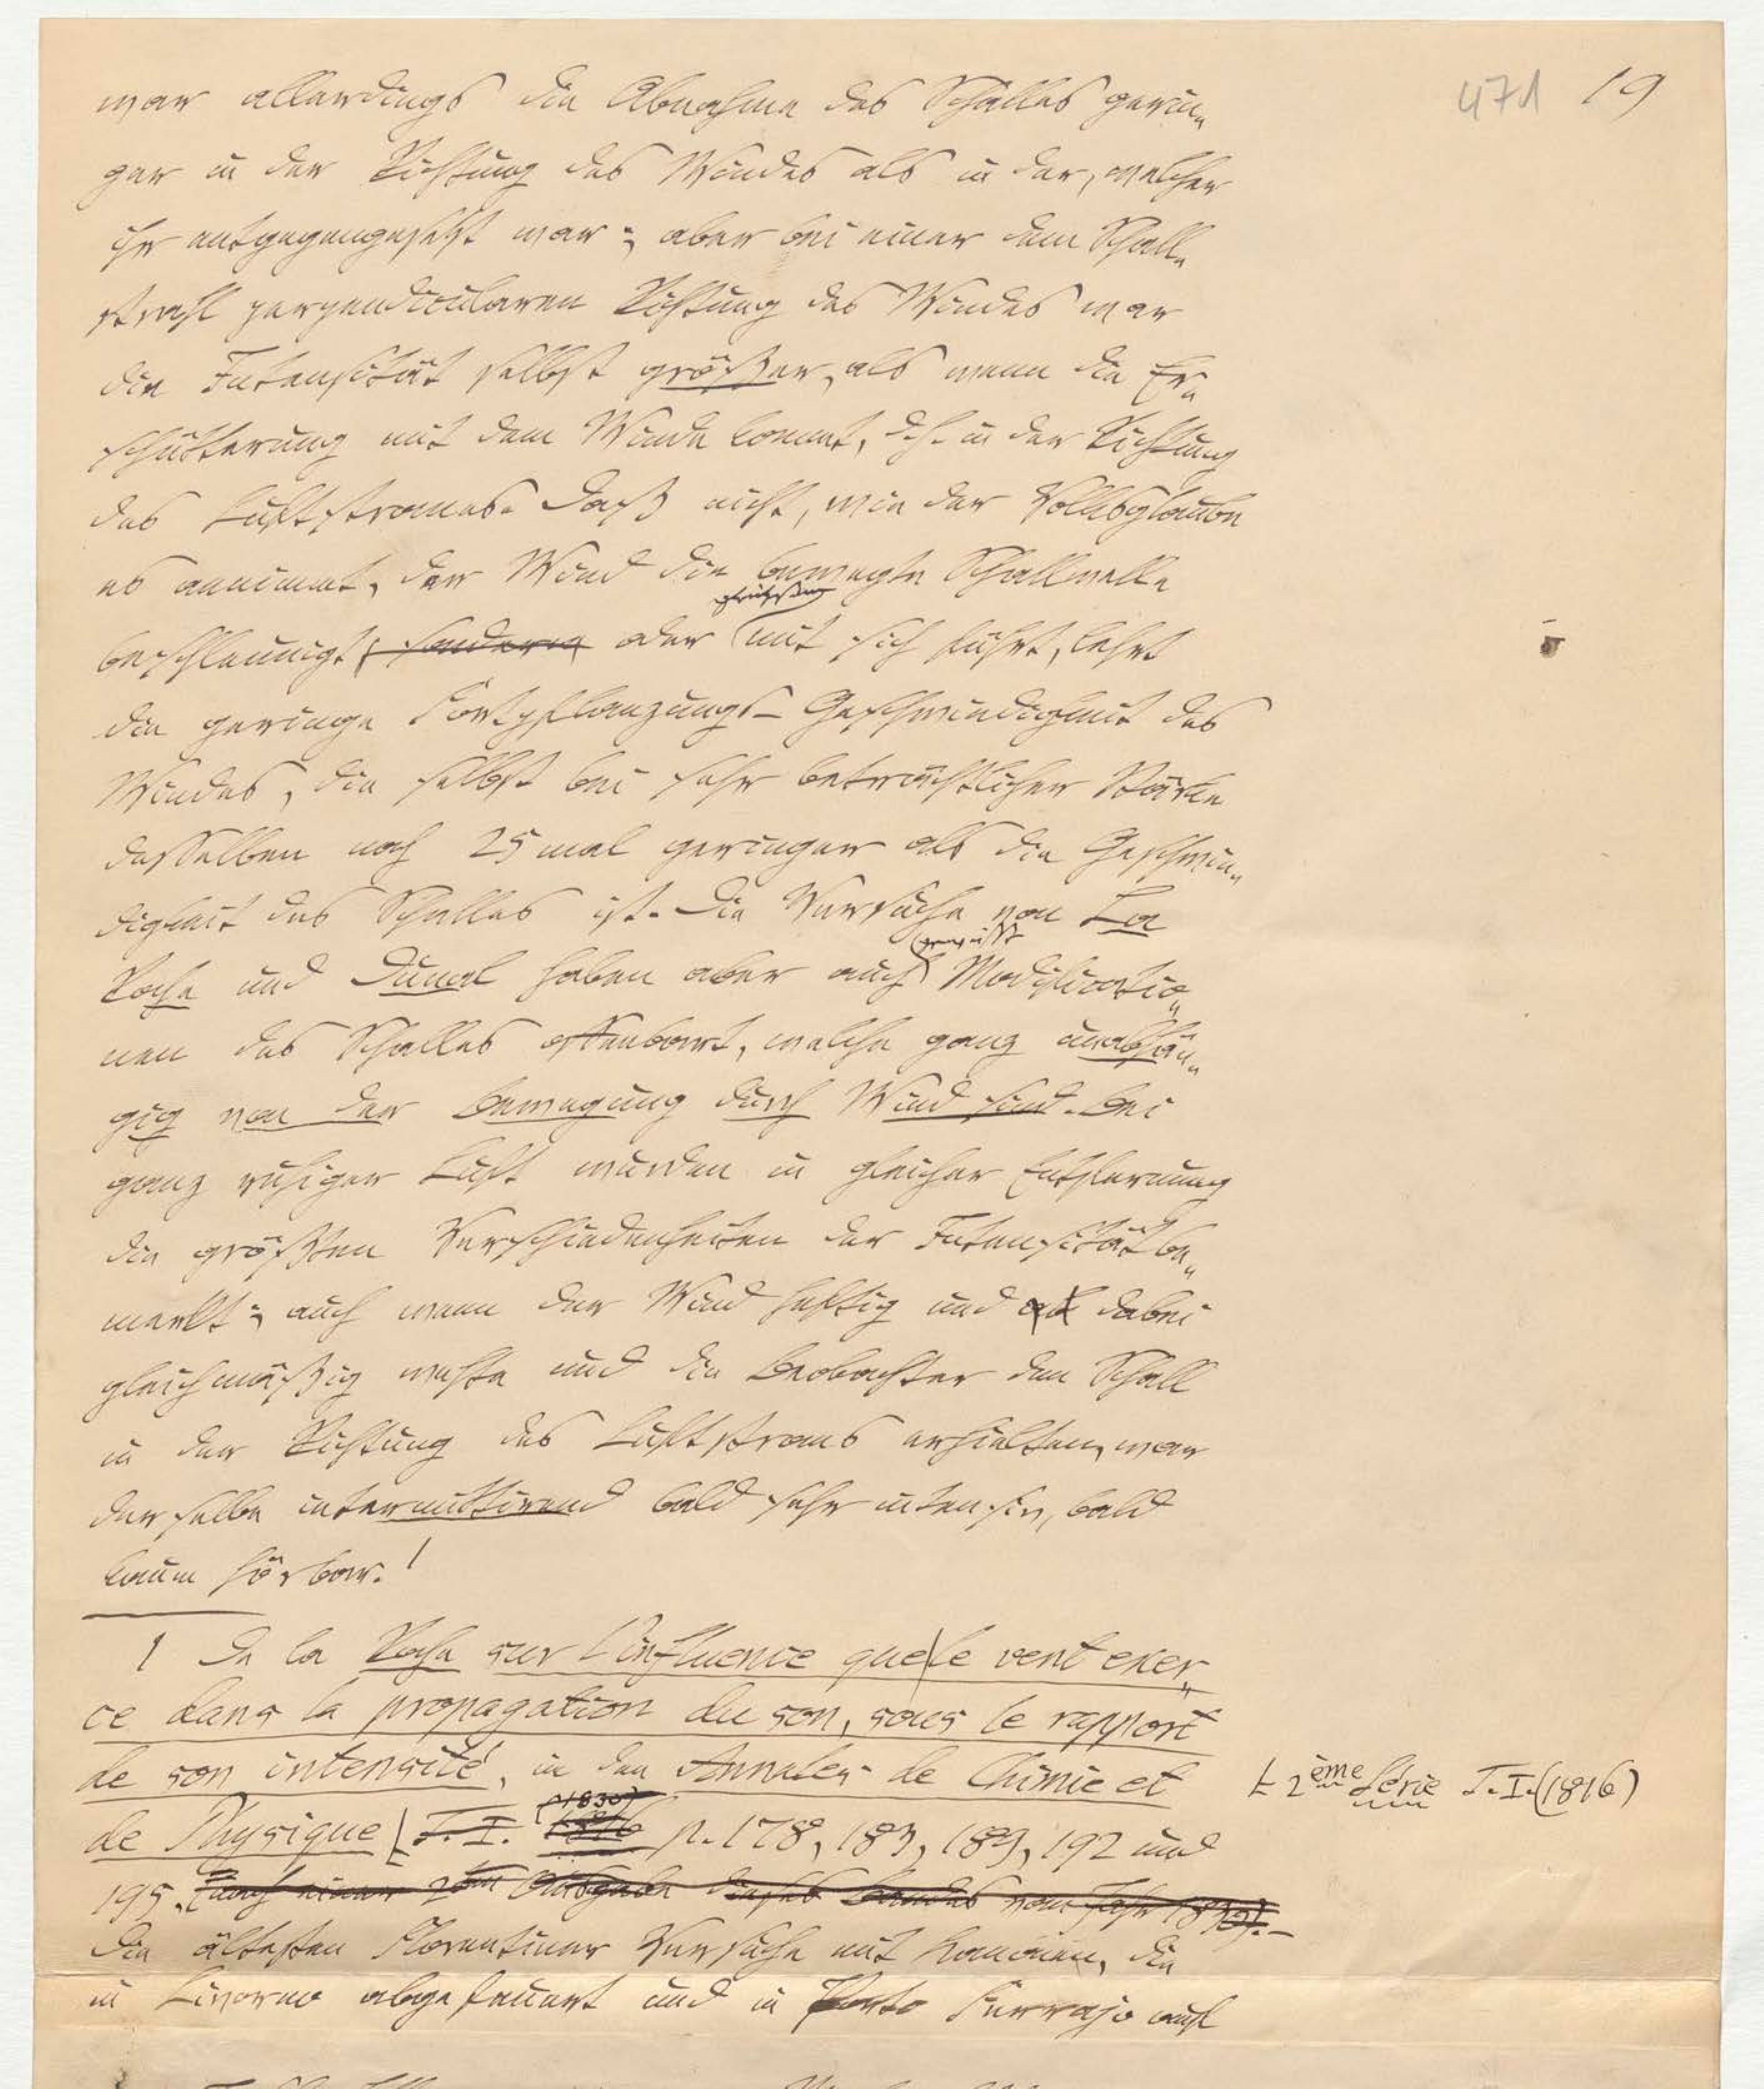 471 19
war allerdings die Abnahme des Schalles gerin-
ger in der Richtung des Windes als in der, welcher
ihr entgegengesetzt war; aber bei einer dem Schall-
strahl perpendicularen Richtung des Windes war
die Intensität selbst größer, als wenn die Er-
schütterung mit dem Winde kommt, d. h. in der Richtung
des Luftstromes. Daß nicht, wie der Volksglaube
es annimmt, der Wind die bewegte Schallwelle
gleichsam
beschleunigt, sondern oder mit sich führt, lehrt
die geringe Fortpflanzungs-Geschwindigkeit des
Windes, die selbst bei sehr beträchtlicher Stärke
desselben noch 25 mal geringer als die Geschwin-
digkeit des Schalles ist. Die Versuche von La
gewisse
Roche und Dunal haben aber auch Modificatio-
nen des Schalles offenbart, welche ganz unabhän-
gig von der Bewegung durch Wind sind. Bei
ganz ruhiger Luft wurden in gleicher Entfernung
die größten Verschiedenheiten der Intensität be-
merkt; auch wenn der Wind heftig und dabei
gleichmäßig wehte und die Beobachter den Schall
in der Richtung des Luftstroms erhielten, war
derselbe intermittirend bald sehr intensiv, bald
kaum hörbar.¹
1 De la Roche sur l'influence que le vent exer-
ce dans la propagation du son, sous le rapport
de son intensité, in den Annales de Chimie et
2ème Série T. I. (1816)
(1830)
de Physique T. I. 1816 p. 178, 183, 189, 192 und
195. (nach einer 2ten Ausgabe dieses Bandes vom Jahr 1830). –
Die ältesten Florentiner Versuche mit Kanonen, die
in Livorno abgefeuert und in Porto Ferrajo auf